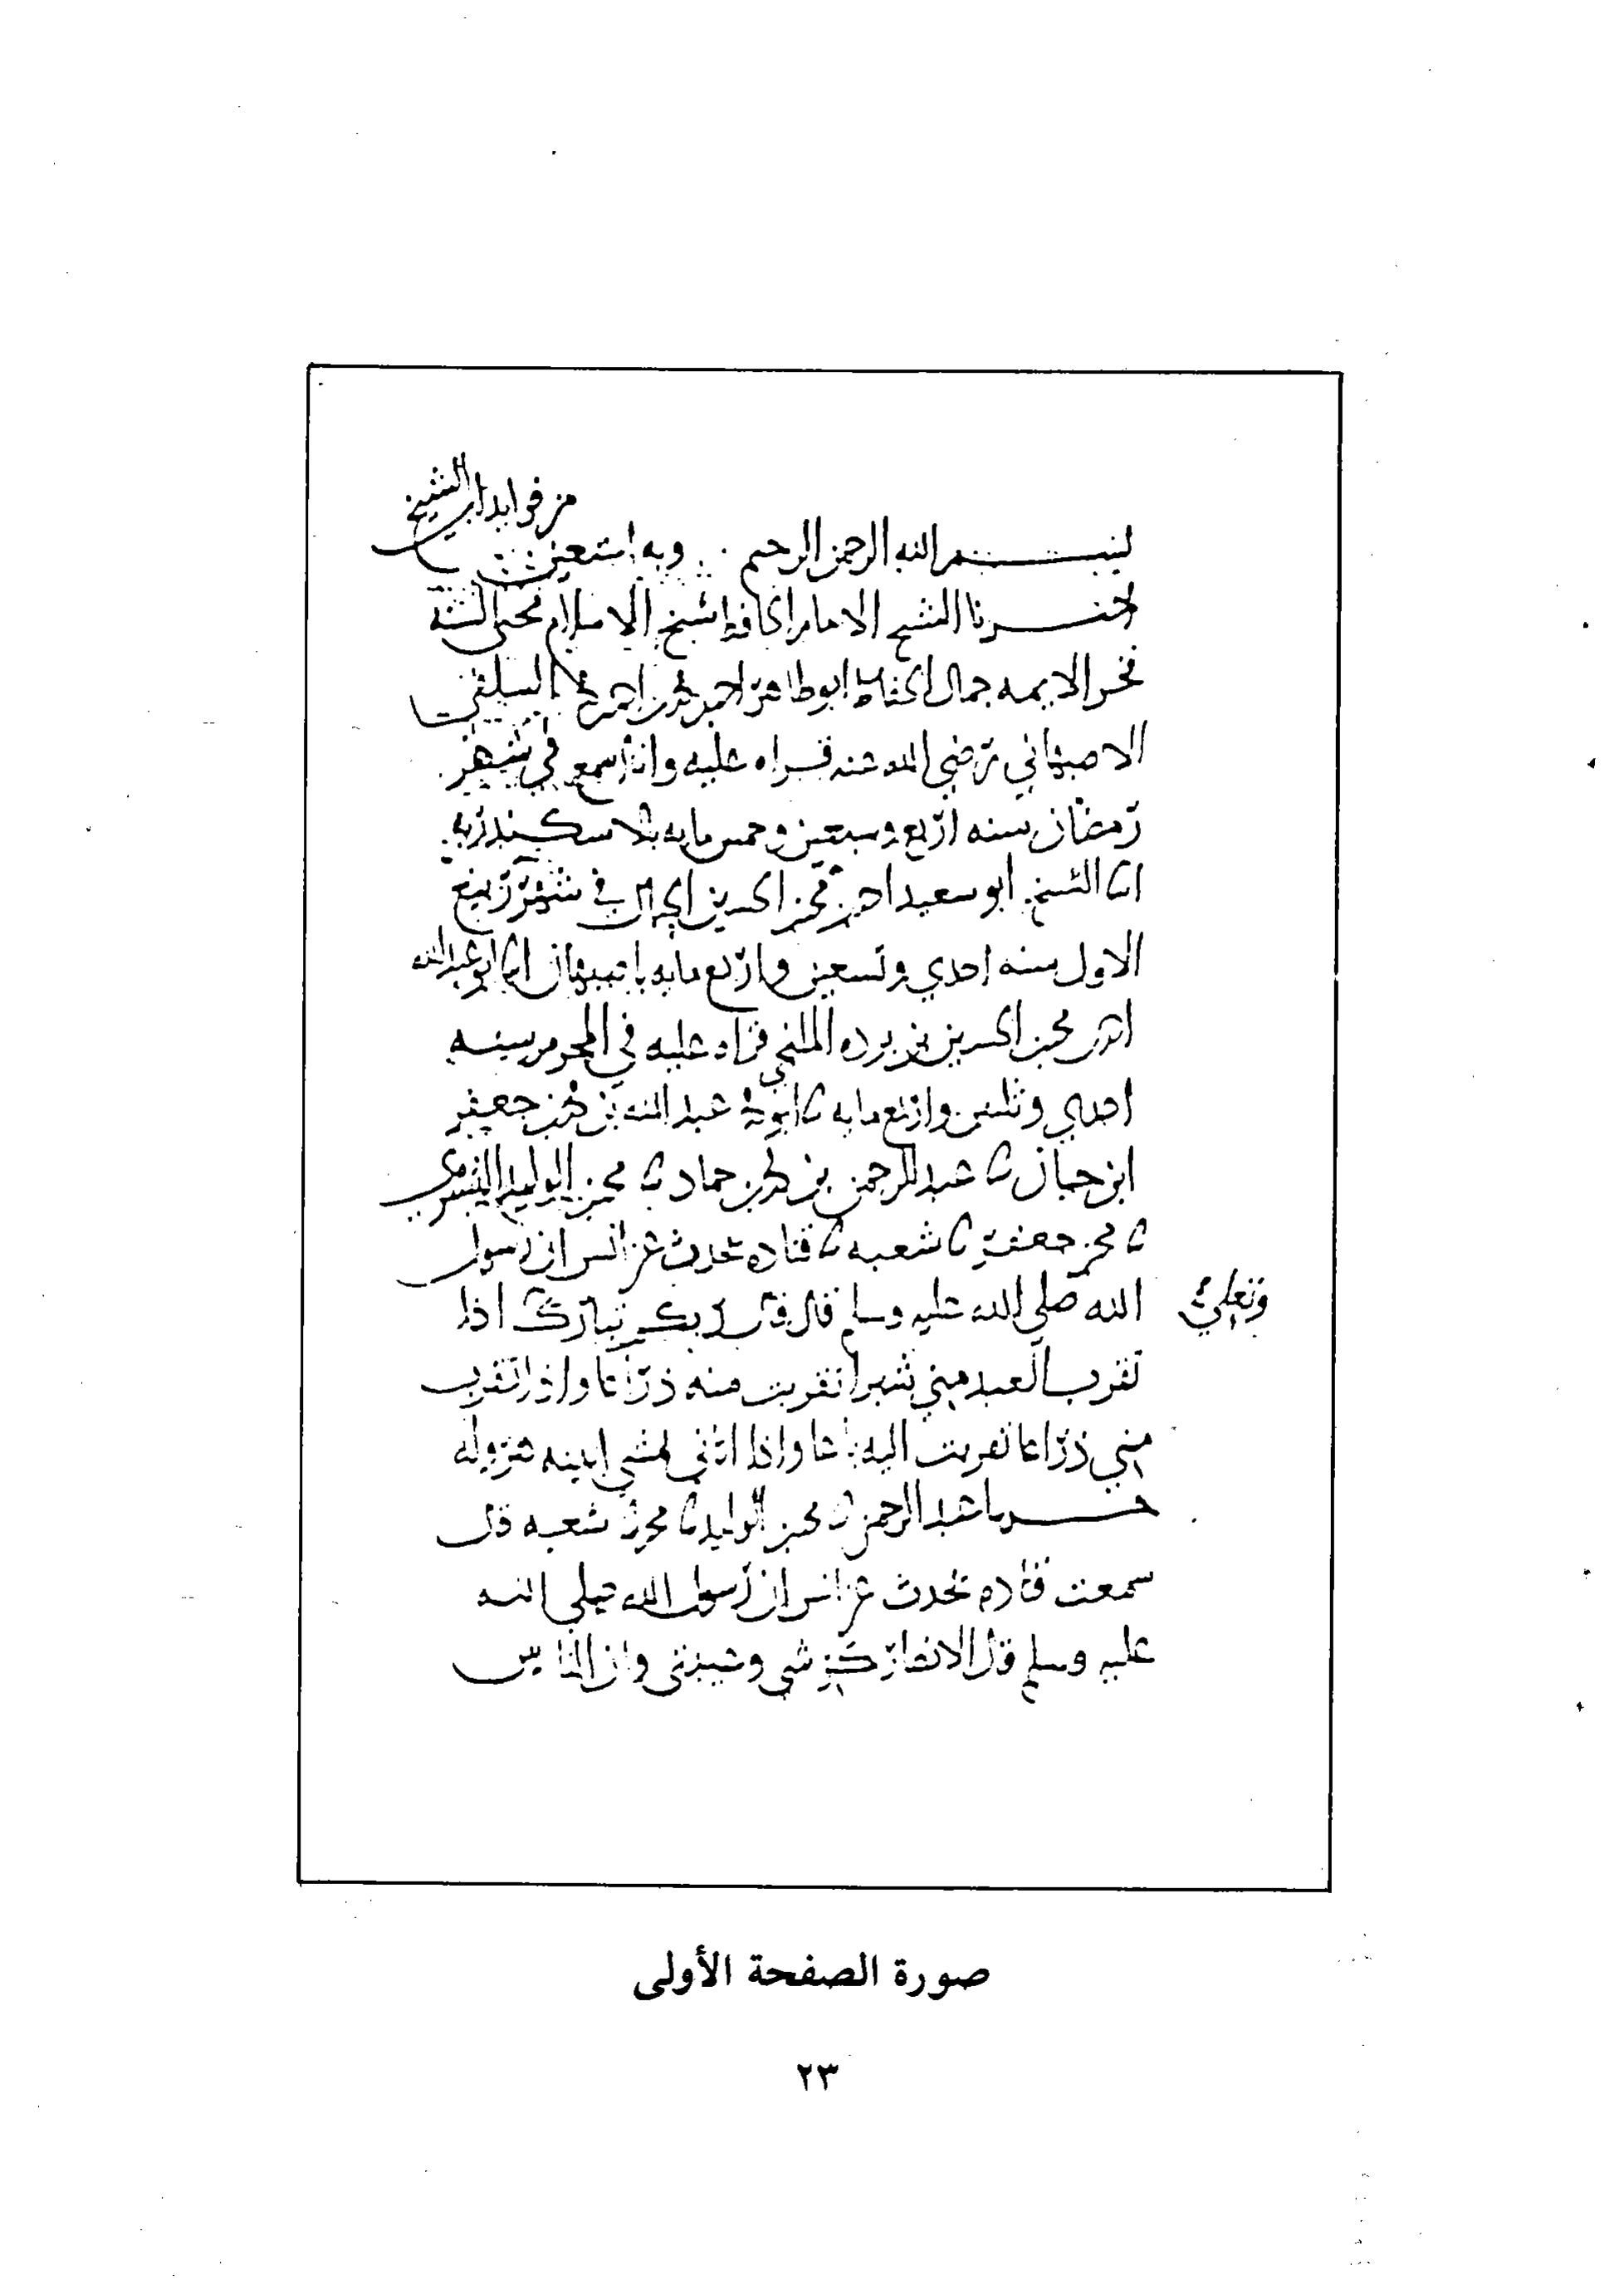 من فوايد ابي الشيخ
بسم الله الرحمن الرحيم وبه استعين
اخبرنا الشيخ الامام الحافظ شيخ الاسلام محيي السنة
فخر الايمه جمال الحفاظ ابو طاهر احمد بن محمد بن احمد بن محمد السلفي
الاصبهاني رضي الله عنه قراه عليه وانا اسمع في شهر
رمضان سنه اربع وسبعين وخمس مايه بالاسكندريه
انا الشيخ ابو سعيد احمد بن محمد بن الحسين في شهر ربيع
الاول سنه احدي وتسعين واربع مايه باصبهان انا ابو عبد الله
محمد بن الحسين بن برده الملنجي قراه عليه في المحرم سنه
احدي وثلثين واربع مايه ثنا ابو محمد عبد الله بن محمد بن جعفر
ابن حيان ثنا عبد الرحمن بن محمد بن حماد ثنا محمد بن الوليد البسري
ثنا محمد بن جعفر ثنا شعبه ثنا قتاده يحدث عن انس ان رسول
الله صلي الله عليه وسلم قال قال ربكم تبارك اذا
وتعلي
تقرب العبد مني شبرا تقربت منه ذراعا واذا تقرب
مني ذراعا تقربت اليه باعا واذا اتاني يمشي اتيته هروله
حدثنا عبد الرحمن ثنا محمد بن الوليد ثنا محمد ثنا شعبه قال
سمعت قتاده يحدث عن انس ان رسول الله صلي الله
عليه وسلم قال الانصار كرشي وعيبتي وان الناس
صورة الصفحة الأولى
٢٣